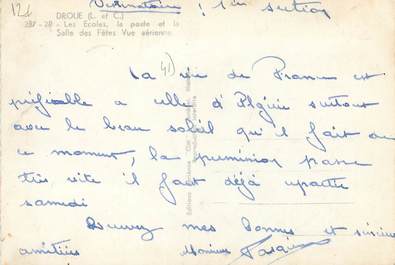 12f
Veterinaire : 1ère section
DROUE (L. et C.)
287-20 - Les Ecoles, la poste et la
Salle des Fêtes Vue aérienne
41)
La vie de France est
préférable a celle d'Algérie surtout
avec le beau soleil qu'il fait en
ce moment, la permission passe
très vite il faut déjà repartir
samedi
Recevez mes bonnes et sincères
amitiées